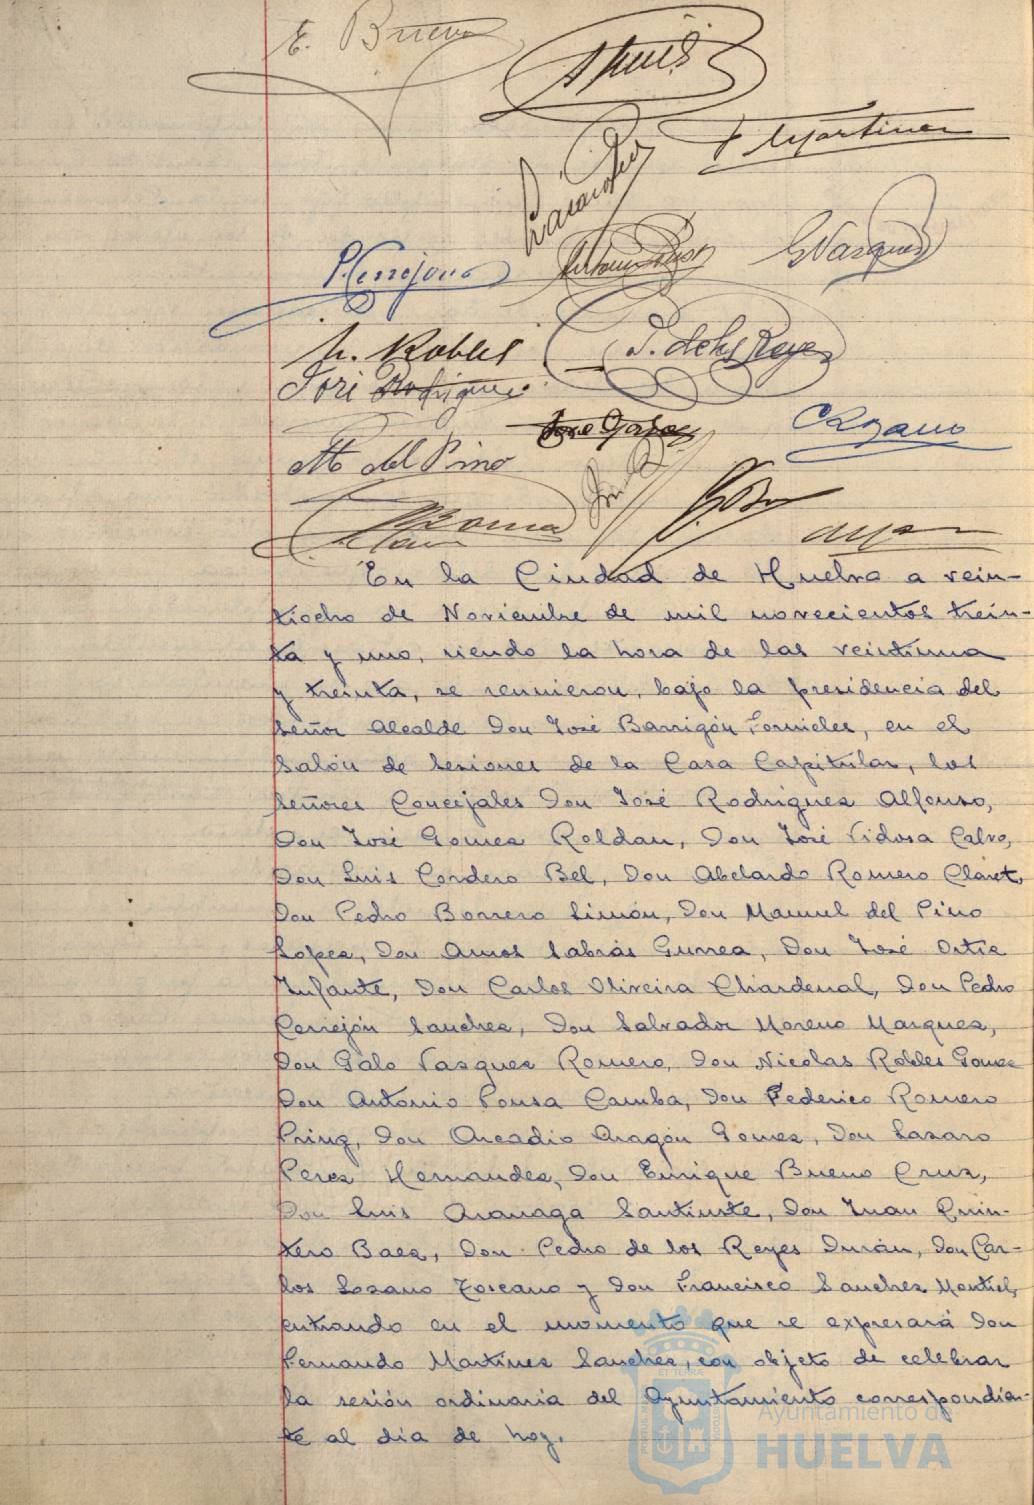 E. Bueno
F Martinez
P. Cerrejón
G Vazquez
N. Robles
P. de los Reyes
José Rodriguez
C Lozano
M del Pino
En la Ciudad de Huelva a vein-
tiocho de Noviembre de mil novecientos trein-
ta y uno, siendo la hora de las veintiuna
y treinta, se reunieron, bajo la presidencia del
Señor Alcalde Don José Barrigón Fornieles, en el
Salón de Sesiones de la Casa Capitular, los
Señores Concejales Don José Rodriguez Alfonso,
Don José Gomez Roldan, Don José Vidosa Calvo,
Don Luis Cordero Bel, Don Abelardo Romero Claret,
Don Pedro Borrero Limón, Don Manuel del Pino
Lopez, Don Amos Sabrás Gurrea, Don José Ortiz
Infante, Don Carlos Oliveira Chardenal, Don Pedro
Cerrejón Sanchez, Don Salvador Moreno Marquez,
Don Galo Vazquez Romero, Don Nicolas Robles Gomez
Don Antonio Pousa Camba, Don Federico Romero
Pring, Don Arcadio Aragón Gomez, Don Lazaro
Perez Hernandez, Don Enrique Bueno Cruz,
Don Luis Aranaga Santiuste, Don Juan Quin-
tero Baez, Don Pedro de los Reyes Durán, Don Car-
los Lozano Toscano y Don Francisco Sanchez Montiel,
entrando en el momento que se expresará Don
Fernando Martinez Sanchez, con objeto de celebrar
la sesión ordinaria del Ayuntamiento correspondien-
te al dia de hoy.
Ayuntamiento de
HUELVA